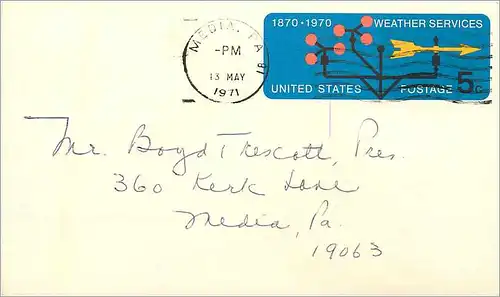 MEDIA, PA
-PM
13 MAY
1971
1870 · 1970 WEATHER SERVICES
UNITED STATES POSTAGE 5c
Mr. Boyd Trescott, Pres.
360 Kerk Lane
Media, Pa.
19063